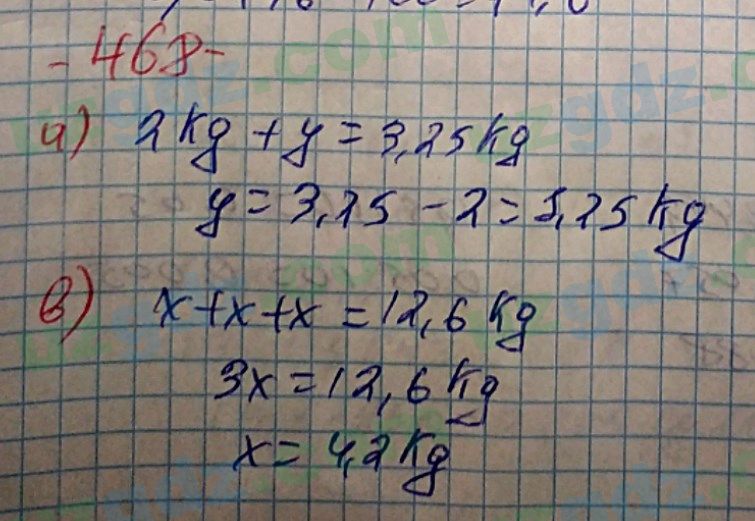 -468-
a) 2kg + y = 3,25kg
y = 3,25 - 2 = 1,25kg
b) x + x + x = 12,6kg
3x = 12,6kg
x = 4,2kg